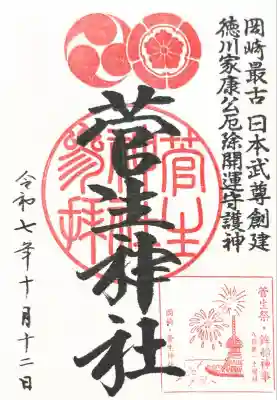 岡崎最古 日本武尊創建
徳川家康公厄除開運守護神
菅生神社
令和七年十月十二日
菅生祭・鉾船神事